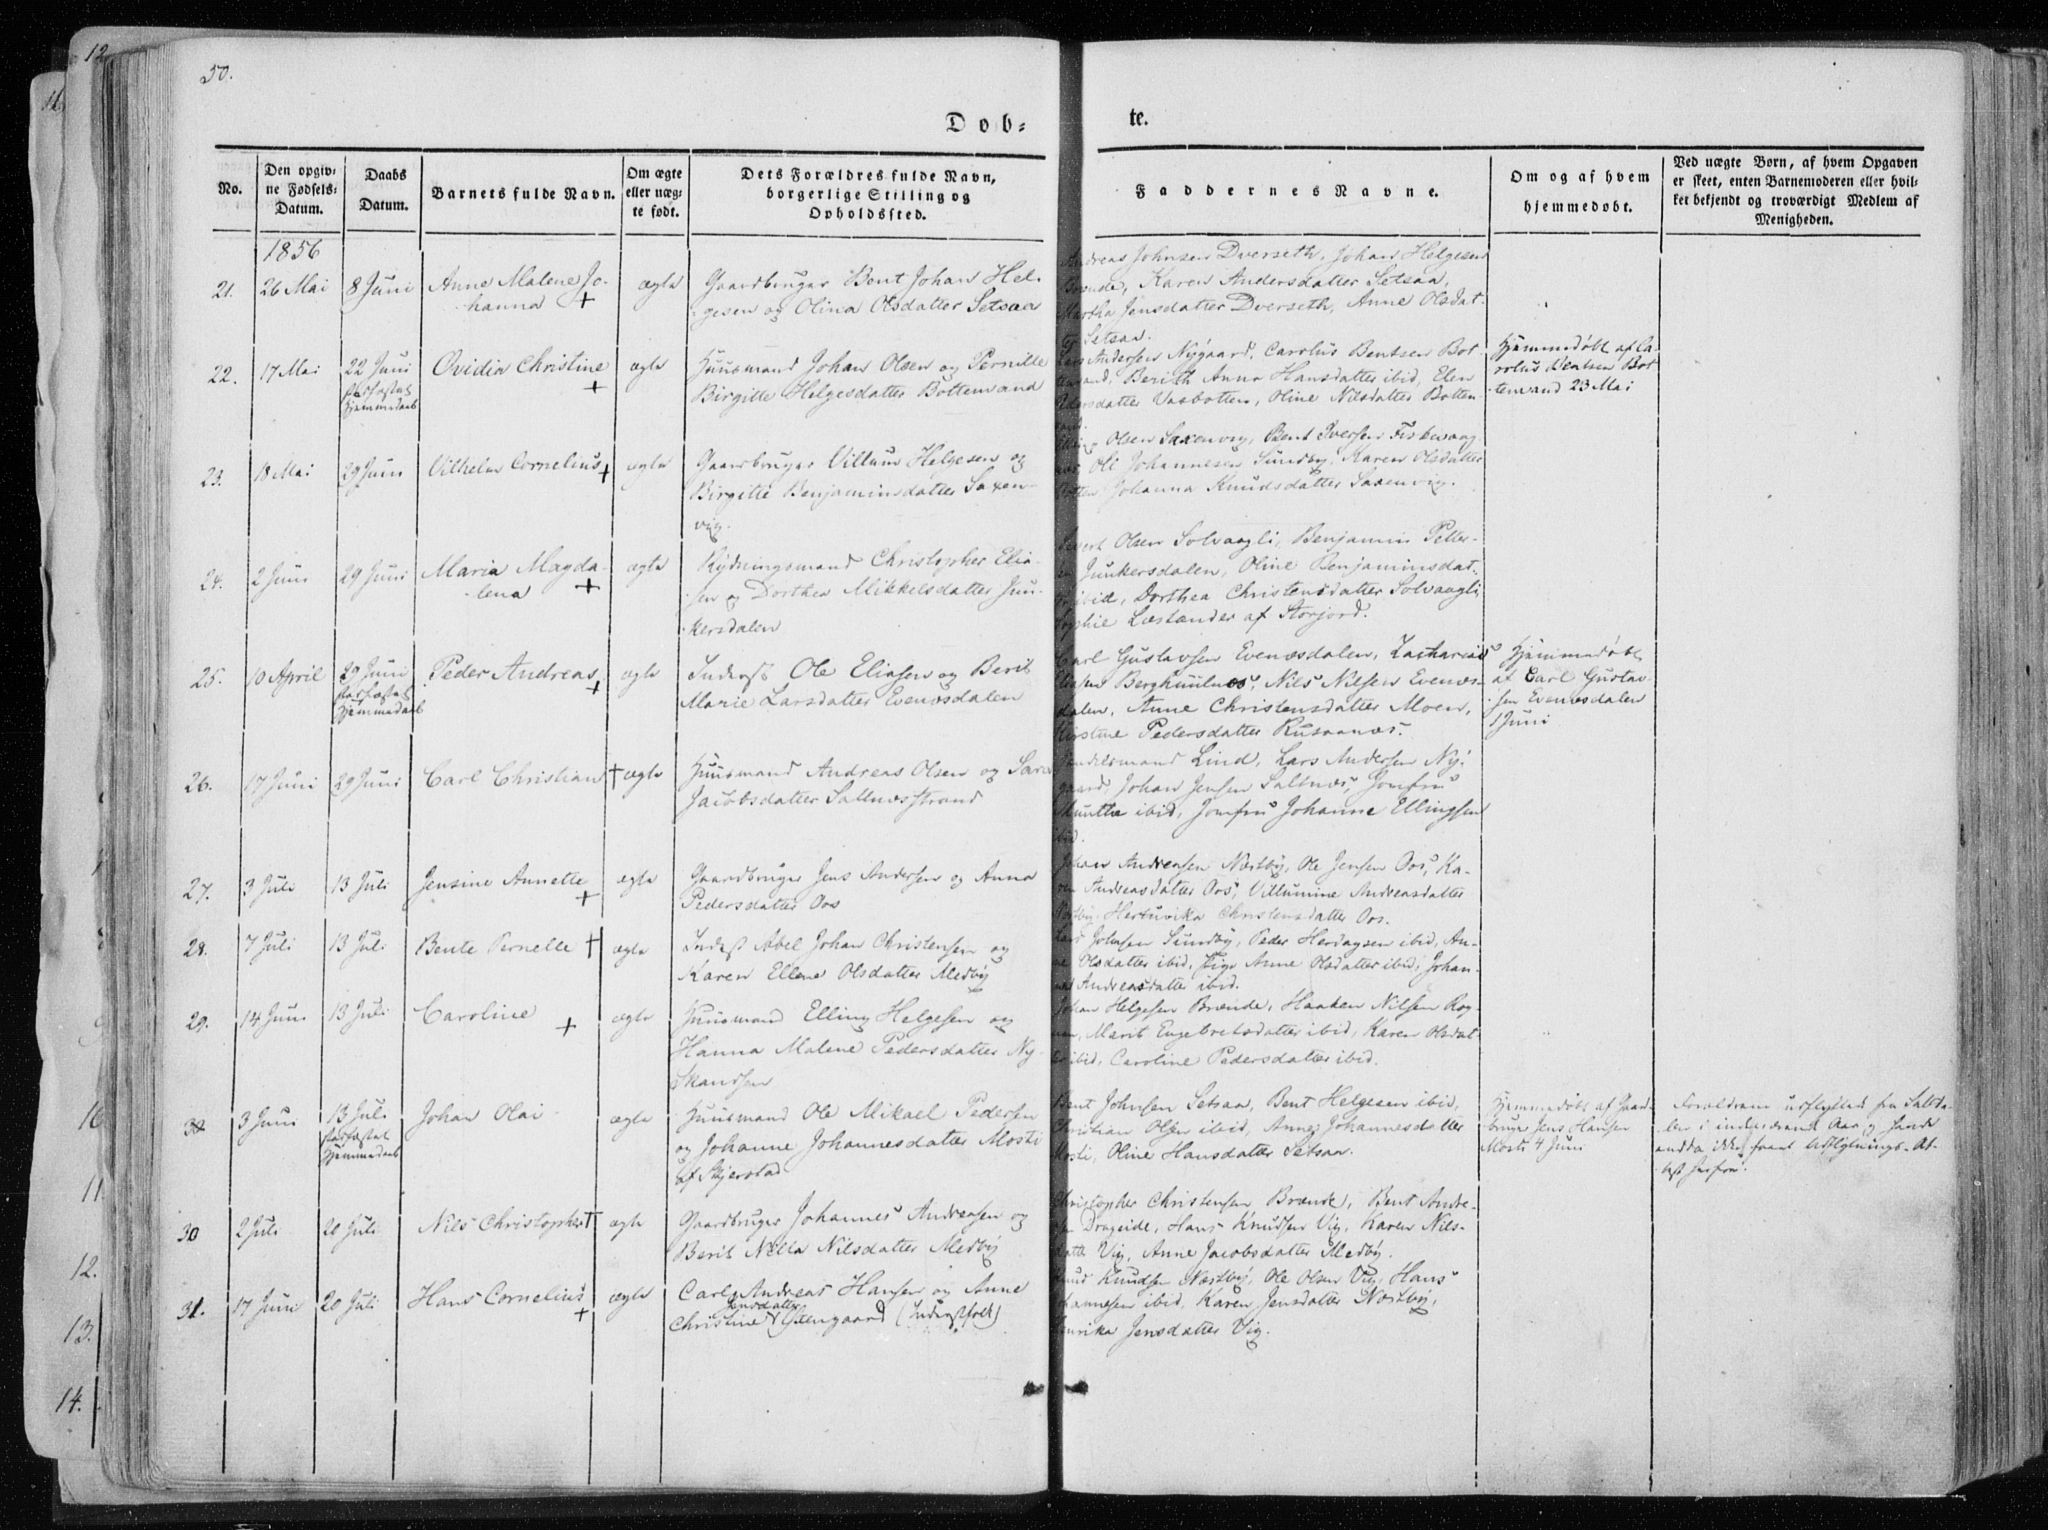 50.
Døb=
te.
No.
Den opgiv-
ne Fødsels-
Datum.
Daabs
Datum.
Barnets fulde Navn.
Om ægte
eller uæg-
te født.
Dets Forældres fulde Navn,
borgerlige Stilling og
Opholdssted.
Faddernes Navne.
Om og af hvem
hjemmedøbt.
Ved uægte Børn, af hvem Opgaven
er skeet, enten Barnemoderen eller hvil-
ket bekjendt og troværdigt Medlem af
Menigheden.
1856
21. 26 Mai 8 Juni Anne Malene Jo-
hanna +
ægte
Gaardbruger Bent Johan Hel-
gesen og Olina Olsdatter Setsaa
Andreas Johnsen Dverseth, Johan Helgesen
Brænde, Karen Andersdatter Setsaa,
Martha Jensdatter Dverseth, Anne Olsdat-
ter Setsaa.
22. 17 Mai 22 Juni
stadfæstet
Hjemmedaab
Ovidia Christine +
ægte
Huusmand Johan Olsen og Pernille
Birgitte Helgesdatter Bottenvand
Lars Andersen Nygaard, Carolus Bentsen Bot-
tenvand, Berith Anna Hansdatter ibid, Elen
Pedersdatter Vasbotten, Oline Nilsdatter Botten-
vand.
Hjemmedøbt af Ca-
rolus Bentsen Bot-
tenvand 23 Mai
23. 18 Mai 29 Juni Vilhelm Cornelius +
ægte
Gaardbruger Villum Helgesen og
Birgitte Benjaminsdatter Saxen-
vig.
Olsen Saxenvig, Bent Iversen Fiskevaag
Ole Johannesen Sundby, Karen Olsdatter
Botten, Johanna Knudsdatter Saxenvig.
24. 2 Juni 29 Juni Maria Magda-
lena +
ægte
Rydningsmand Christopher Elia-
sen og Dorthea Mikkelsdatter Jun-
kersdalen
Sivert Olsen Solvaagli, Benjamin Petter-
sen Junkersdalen, Oline Benjaminsdat-
ter ibid, Dorthea Christensdatter Solvaagli
Sophie Læstander af Storjord.
25. 10 April 29 Juni
stadfæstet
Hjemmedaab
Peder Andreas +
ægte
Inderst Ole Eliasen og Berit
Marie Larsdatter Evenæsdalen
Carl Gustavsen Evenæsdalen, Zacharias
Eliasen Berghuulnæs, Nils Nilsen Evenæs-
dalen, Anne Christensdatter Moen,
Kirstine Pedersdatter Rusaanæs.
Hjemmedøbt
af Carl Gustav-
sen Evenæsdalen
1 Juni
26. 17 Juni 29 Juni Carl Christian +
ægte
Huusmand Andreas Olsen og Sara
Jacobsdatter Saltnæsstrand
Handelsmand Lind, Lars Andersen Ny-
gaard, Johan Jensen Saltnæs, Jomfru
Munthe ibid, Jomfru Johanne Ellingsen
ibid.
27. 3 Juli 13 Juli Jensine Annette +
ægte
Gaardbruger Jens Andersen og Anna
Pedersdatter Oos
Johan Andreasen Næstby, Ole Jensen Oos, Ka-
ren Andreasdatter Oos, Villumine Andreasdatter
Næstby, Hertuvika Christensdatter Oos.
28. 7 Juli 13 Juli Bente Pernelle +
ægte
Inderst Abel Johan Christensen og
Karen Ellene Olsdatter Medby
Lars Johnsen Sundby, Peder Herdagsen ibid, An-
ne Olsdatter ibid, Pige Anne Olsdatter ibid, Johan-
na Andreasdatter ibid.
29. 14 Juni 13 Juli Caroline +
ægte
Huusmand Elling Helgesen og
Hanna Malene Pedersdatter Ny-
Skandsen
Johan Helgesen Brænde, Haaken Nilsen Rog-
nan, Marit Engebretsdatter ibid, Karen Olsdat-
ter ibid, Caroline Pedersdatter ibid.
30 3 Juni 13 Juli
stadfæstet
Hjemmedaab
Johan Olai
ægte
Huusmand Ole Mikael Pedersen
og Johanne Johannesdatter Mosti
af Skjerstad
Bent Johnsen Setsaa, Bent Helgesen ibid,
Christian Olsen ibid, Anne Johannesdatter
Mosti, Oline Hansdatter Setsaa.
Hjemmedøbt af Gaard-
bruger Jens Hansen
Mosti 4 Juni
Forældrene udflyttede fra Saltda-
len i indeværende Aar og havde
endda ikke faaet Udflytnings-At-
test herfra.
30 2 Juli 20 Juli Nils Christopher +
ægte
Gaardbruger Johannes Andreasen og
Berit Nilla Nilsdatter Medby
Christopher Christensen Brænde, Bent Andre-
sen Drageide, Hans Knudsen Vig, Karen Nils-
datter Vig, Anne Jacobsdatter Medby.
31. 17 Juni 20 Juli Hans Cornelius +
ægte
Carl Andreas Hansen og Anne
Jensdatter
Christine Steengaard (Inderstfolk)
Knud Knudsen Næstby, Ole Olsen Vig, Hans
Johannesen ibid, Karen Jensdatter Næstby,
Henrika Jensdatter Vig.
12
16
11.
12.
13.
14.